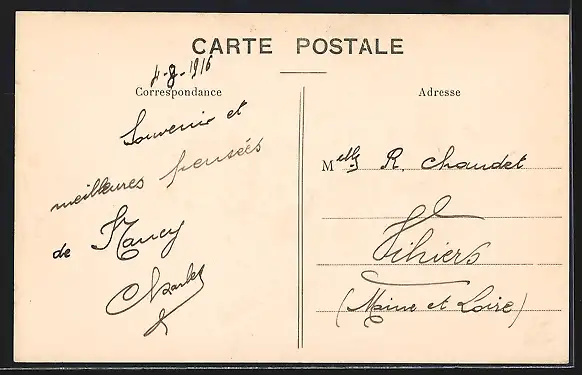 CARTE POSTALE
4-8-1916
Correspondance
Souvenir et
meilleures pensées
de Nancy
Charles
Adresse
Melle R. Chaudet
Vihiers
(Maine et Loire)